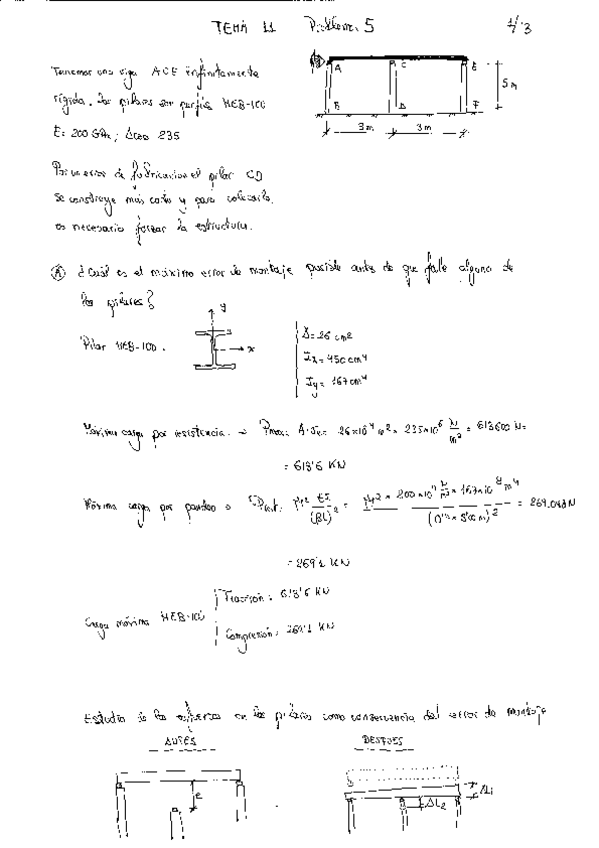 TEMA 11 Problema 5 1/3
Tenemos una viga ACE infinitamente
rígida. Los pilares son perfiles HEB-100
E= 200 GPa; Acero 235
A C E
B D F
5m
3m 3m
Por un error de fabricación el pilar CD
se construye más corto y para colocarlo,
es necesario forzar la estructura.
A ¿Cuál es el máximo error de montaje posible antes de que falle alguno de
los pilares?
Pilar HEB-100.
y
x
A= 26 cm2
Ix= 450 cm4
Iy= 167 cm4
Máxima carga por resistencia. → Pmax: A·σe= 26×10⁻⁴ m2 × 235×10⁶ N/m² = 611000 N=
= 611'0 KN
Máxima carga por pandeo
= 269'1 KN
Carga máxima HEB-100
Tracción:
Compresión: 269'1 KN
Estudio de los esfuerzos en los pilares como consecuencia del error de montaje
ANTES DESPUES
e ΔL2 ΔL1